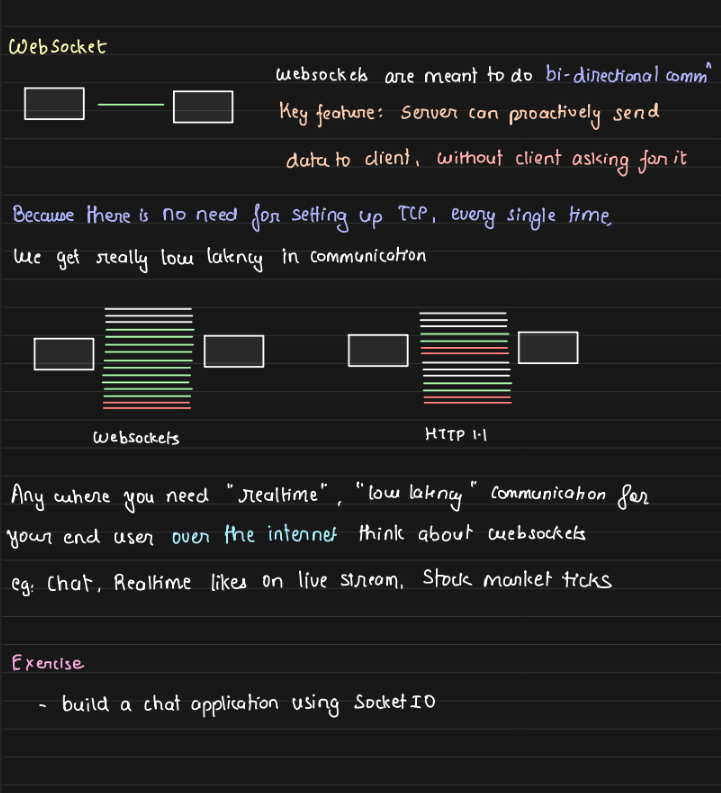 WebSocket
websockets are meant to do bi-directional commⁿ
Key feature: Server can proactively send
data to client, without client asking for it
Because there is no need for setting up TCP, every single time,
we get really low latency in communication
Websockets
HTTP 1.1
Any where you need "realtime", "low latency" communication for
your end user over the internet think about websockets
eg: Chat, Realtime likes on live stream, Stock market ticks
Exercise
- build a chat application using SocketIO